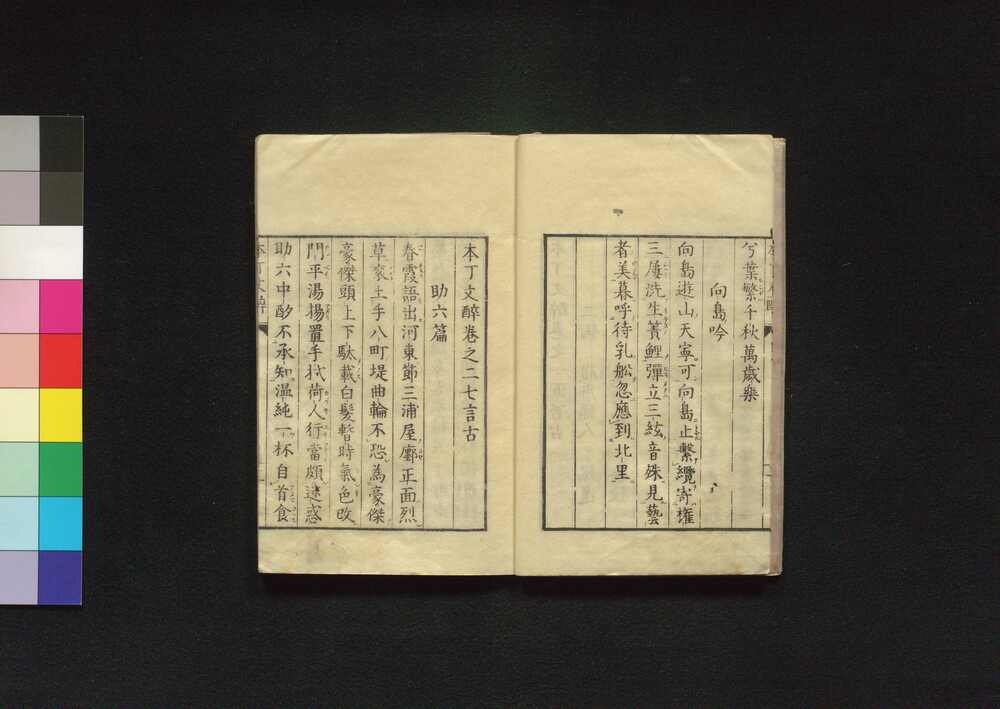 兮葉繁千秋萬歳樂
向島吟
向島遊山天寧可向島止繫纜寄權
三屢洗生簀鯉彈立三絃音殊見藝
者美暮呼待乳舩忽應到北里
本丁文醉卷之二七言古
助六篇
春霞語出河東節三浦屋廓正面烈
草衮土手八町堤曲輪不恐為豪傑
豪傑頭上下駄載白髮暫時氣色改
門平湯揚置手拭荷人行當頗迷惑
助六中酌不承知溫純一杯自首食
本丁文醉